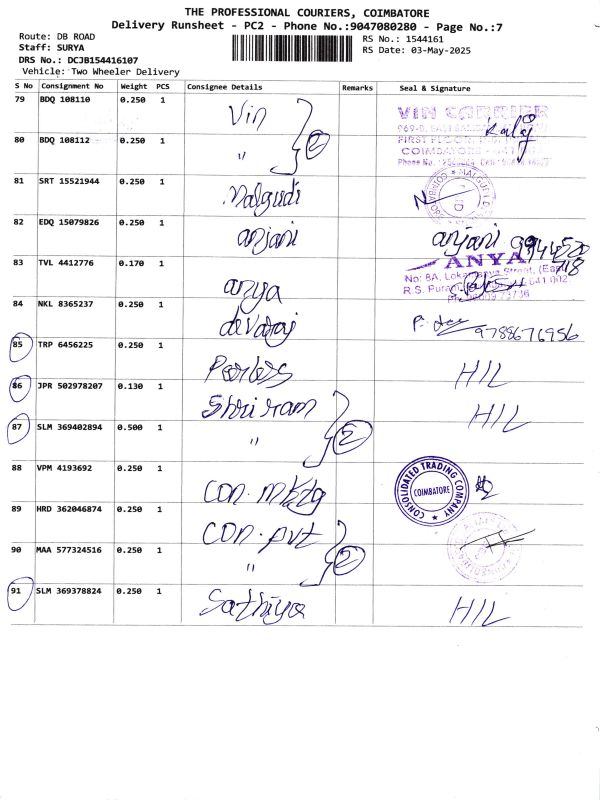 THE PROFESSIONAL COURIERS, COIMBATORE
Delivery Runsheet - PC2 - Phone No.:9047080280 - Page No.:7
Route: DB ROAD
Staff: SURYA
DRS No.: DCJB154416107
Vehicle: Two Wheeler Delivery
RS No.: 1544161
RS Date: 03-May-2025
S No Consignment No Weight PCS Consignee Details Remarks Seal & Signature
79 BDQ 108110 0.250 1 Vin VIN CARRIER
80 BDQ 108112 0.250 1 " 2
FIRST FLOOR
COIMBATORE
Phone No.
81 SRT 15521944 0.250 1 Malgudi
82 EDQ 15079826 0.250 1 anjani anjani
83 TVL 4412776 0.170 1 anya ANYA
No: 8A, Street, (East)
R.S. Puram 641 002.
84 NKL 8365237 0.250 1 devaraj 9788676956
85 TRP 6456225 0.250 1 HIL
86 JPR 502978207 0.130 1 Shriram HIL
87 SLM 369402894 0.500 1 " 2
88 VPM 4193692 0.250 1 con. mktg CONSOLIDATED TRADING COMPANY COIMBATORE
89 HRD 362046874 0.250 1 con. pvt
90 MAA 577324516 0.250 1 " 2
91 SLM 369378824 0.250 1 Sathiya HIL